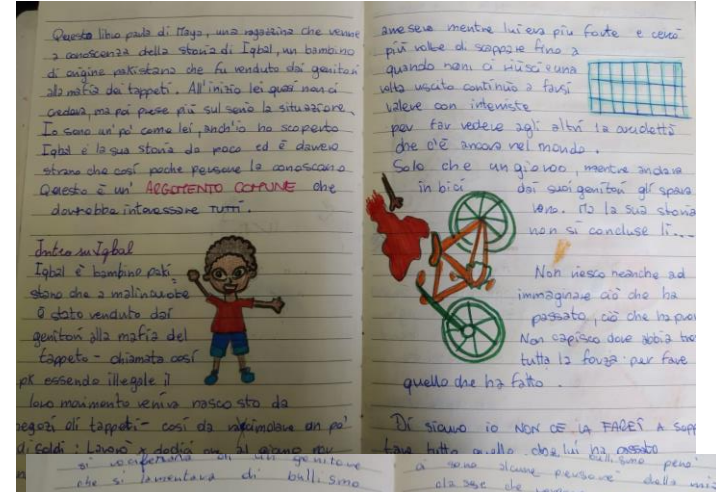 Questo libro parla di Maya, una ragazzina che venne
a conoscenza della storia di Iqbal, un bambino
di origine pakistana che fu venduto dai genitori
alla mafia dei tappeti. All'inizio lei quasi non ci
credeva, ma poi prese più sul serio la situazione.
Io sono un'pò come lei, anch'io ho scoperto
Iqbal e la sua storia da poco ed è davvero
strano che così poche persone la conoscano
Questo è un' ARGOMENTO COMUNE che
dovrebbe interessare TUTTI.
Intro su Iqbal
Iqbal è bambino paki
stano che a malincuore
è stato venduto dai
genitori alla mafia del
tappeto - chiamata così
pk essendo illegale il
loro movimento veniva nascosto da
negozi di tappeti - così da racimolare un po'
di soldi. Lavorò
mentre lui era più forte e cercò
più volte di scappare fino a
quando non ci riuscì e una
volta uscito continuò a farsi
valere con interviste
per far vedere agli altri la
che c'è ancora nel mondo.
Solo che un giorno, mentre andava
in bici dai suoi genitori gli spara
rono. Ma la sua storia
non si concluse lì...
Non riesco neanche ad
immaginare ciò che ha
passato, ciò che ha
Non capisco dove abbia
tutta la forza per fare
quello che ha fatto.
Di sicuro io NON CE LA FAREI A
tutto quello che lui ha passato
di un genitore
che si lamentava di bullismo
bullismo però
ci sono alcune persone della
classe che